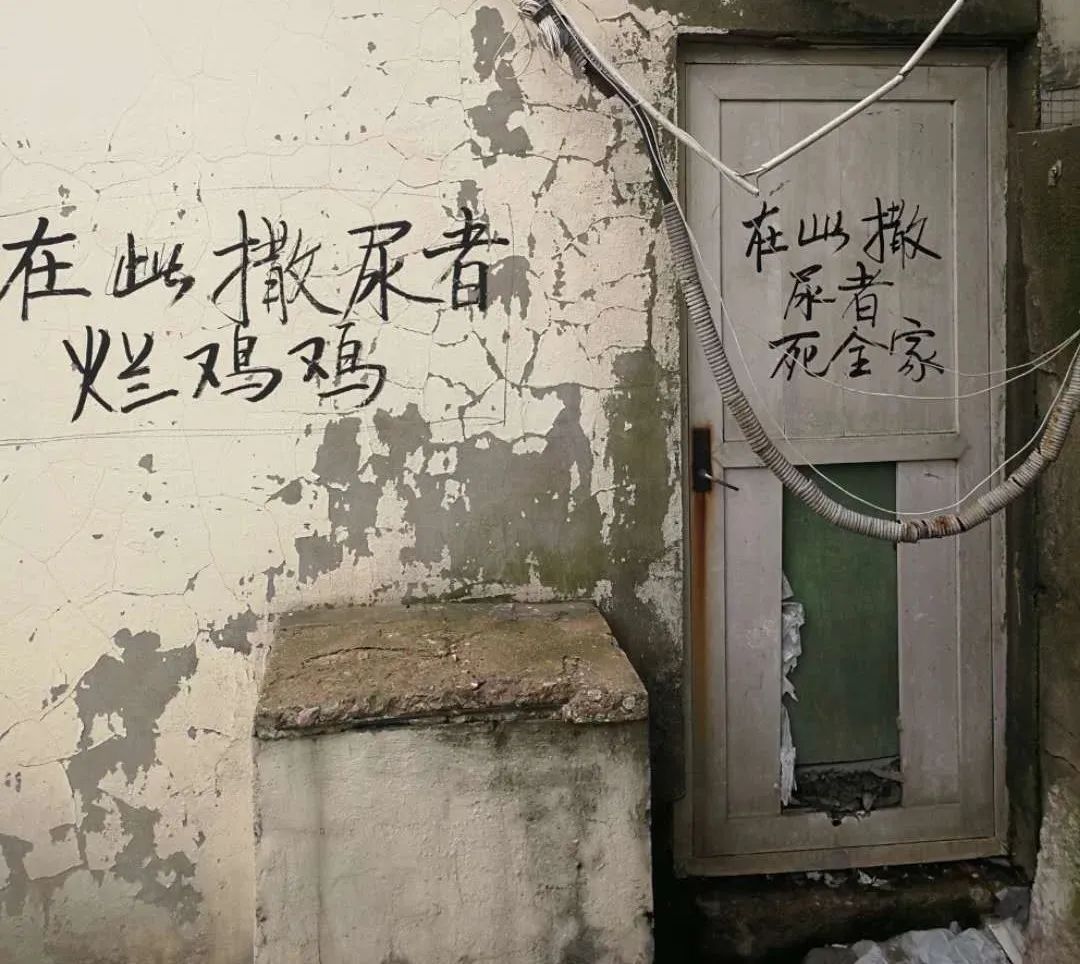 在此撒尿者
烂鸡鸡
在此撒
尿者
死全家